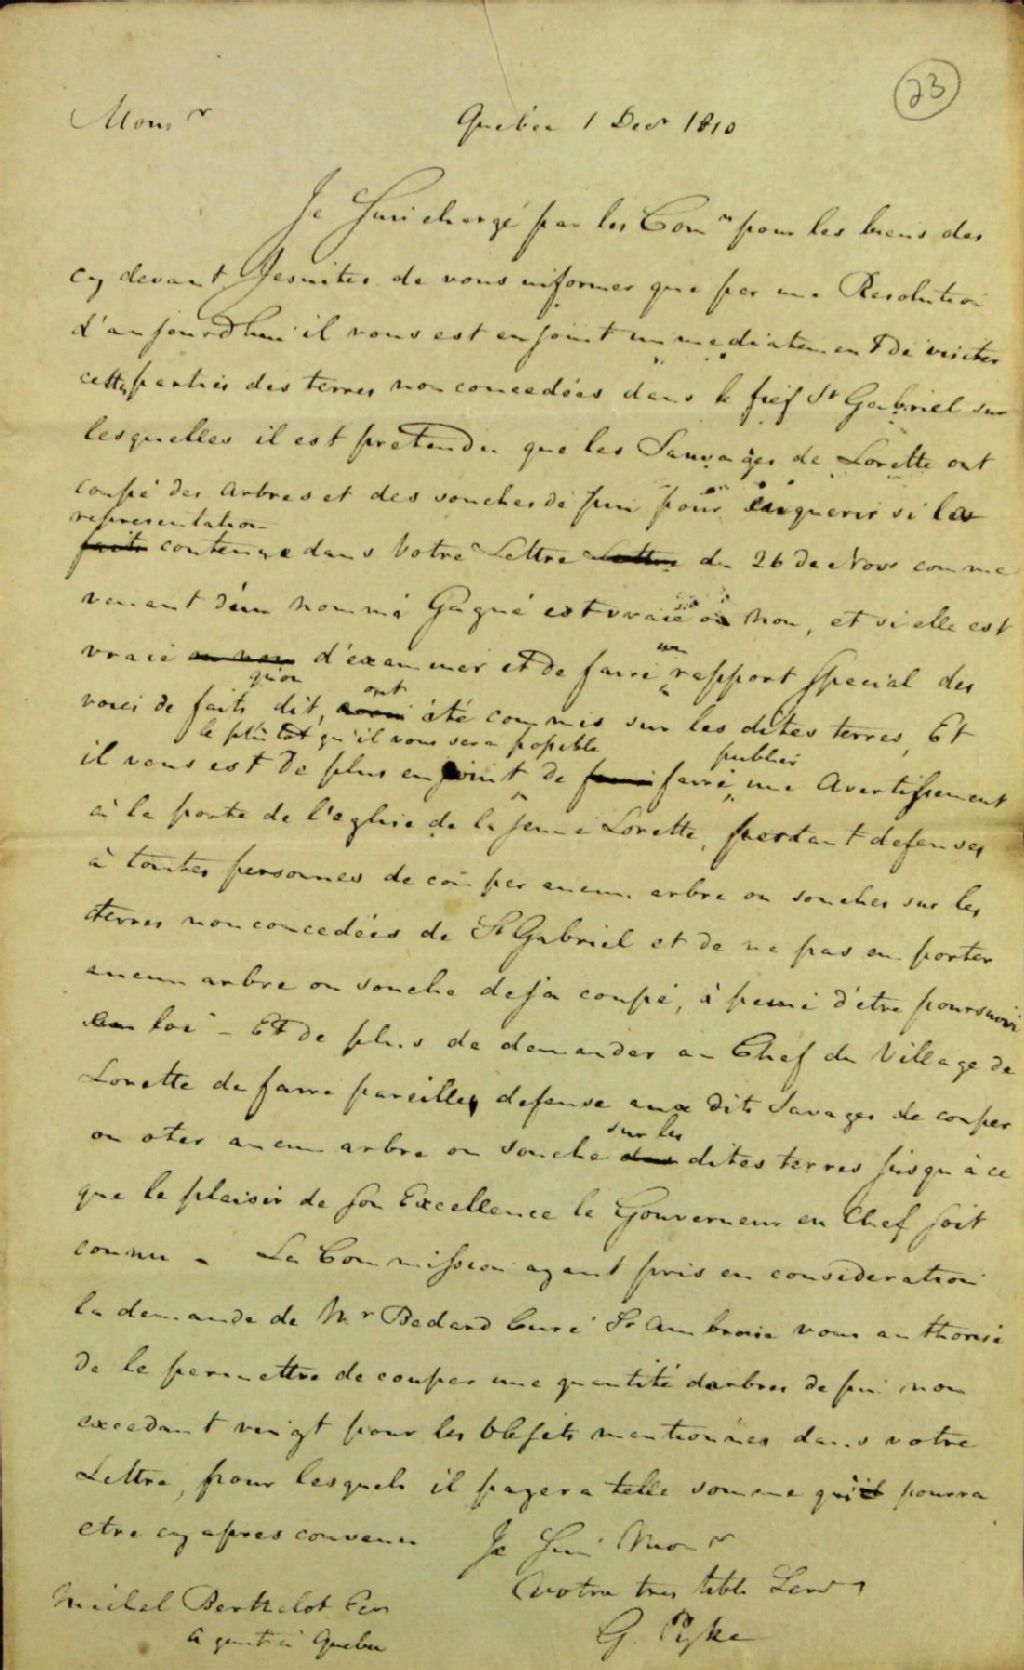 23
Monsr Quebec 1 Decr 1810
Je suis chargé par les Comrs pour les biens des
cy devant Jesuites de vous informer que par une Resolution
d'aujourdhui il vous est enjoint immediatement de visiter
cette partie des terres non concedées dans le fief St Gabriel sur
lesquelles il est pretendu que les Sauvages de Lorette ont
coupé des arbres et des souches de pin pour enquerir si la
representation
faite contenue dans votre Lettre Lettre du 26 de Novr comme
venant d'un nommé Gagné est vraie ou non, et si elle est
un
vraie ou non d'examiner et de faire rapport special des
qu'on ont
voies de faits dit, avoir été commis sur les dites terres, Et
le plutot qu'il vous sera possible publier
il vous est de plus enjoint de faire faire une Avertissement
à la porte de l'eglise de la jeune Lorette, portant defenses
à toutes personnes de couper aucun arbre ou souches sur les
terres non concedées de St Gabriel et de ne pas emporter
aucun arbre ou souche deja coupé, à peine d'etre poursuivi
en loi - Et de plus de demander au Chef du Village de
Lorette de faire pareilles defense aux dits Savages de couper
sur les
ou oter aucun arbre ou souche des dites terres jusqu'à ce
que le plaisir de son Excellence le Gouverneur en Chef soit
connu - La Commission ayant pris en consideration
la demande de Mr Bedard Curé St Ambroise vous authorise
de le permettre de couper une quantité d'arbres de pin non
excedant vingt pour les objets mentionnés dans votre
Lettre, pour lesquels il payera telle somme qu'il pourra
etre cy apres convenu Je suis Monsr
Votre tres hble Servr
Michel Berthelot Ecr G. Pyke
Agent à Quebec